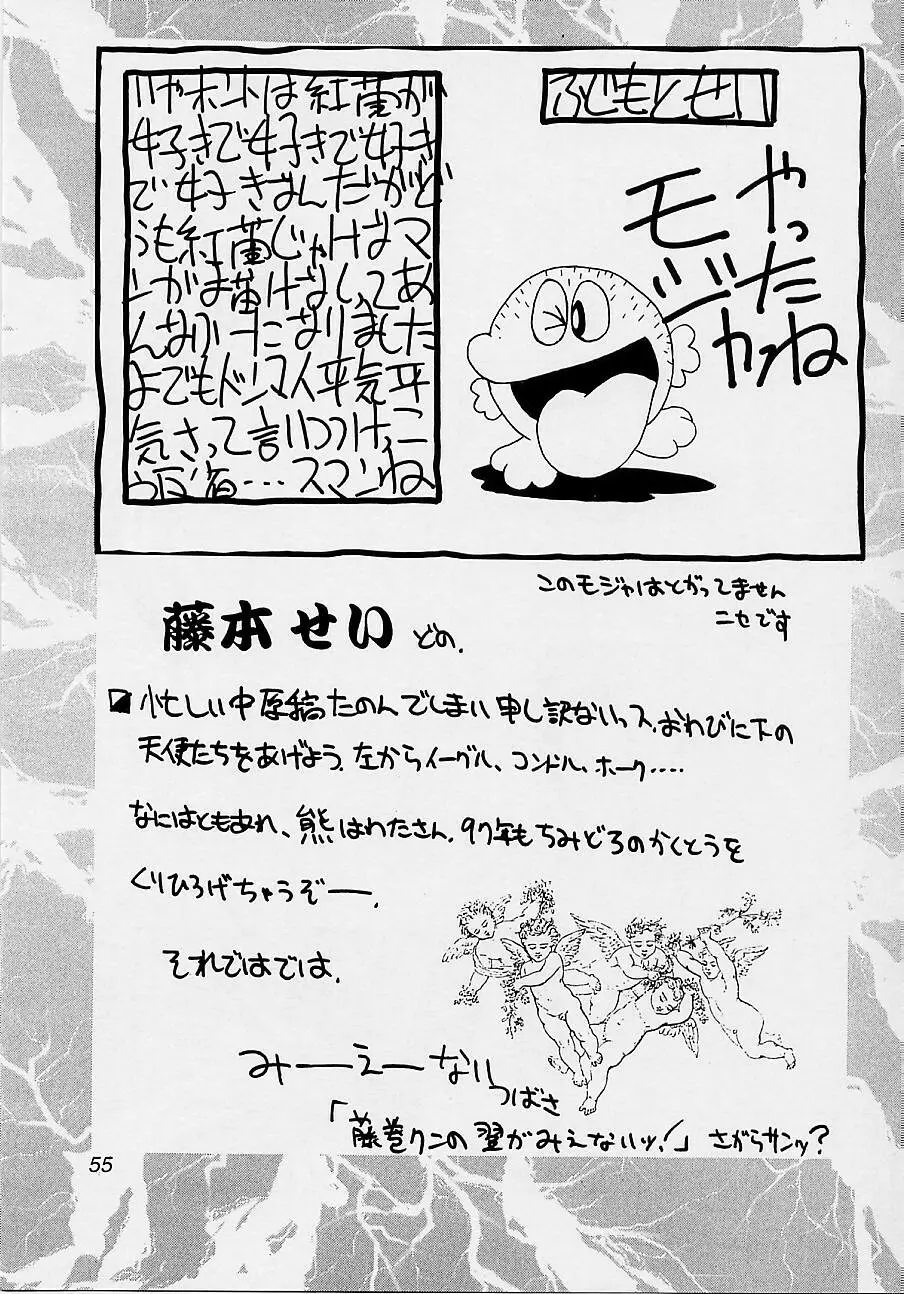 ふじもとせい
やったね
モジャ
いやホントは紅蘭が
好きで好きで好き
で好きなんだがど
うも紅蘭じゃけばマ
ンガお蘭けなしってあ
んなかーたになりました
よでもドンマイ平気平
気さって言いつつけっこ
う反省…スマンね
このモジャはとがってません
ニセです
藤本せい どの.
忙しい中原稿たのんでしまい申し訳ないっス.おわびに下の
天使たちをあげよう.左からイーグル、コンドル、ホーク‥‥
なにはともあれ、熊はわたさん.97年もちみどろのかくとうを
くりひろげちゃうぞー.
それではでは.
みーえーない
つばさ
「藤巻クンの翼がみえないッ!」さがらサンッ?
55